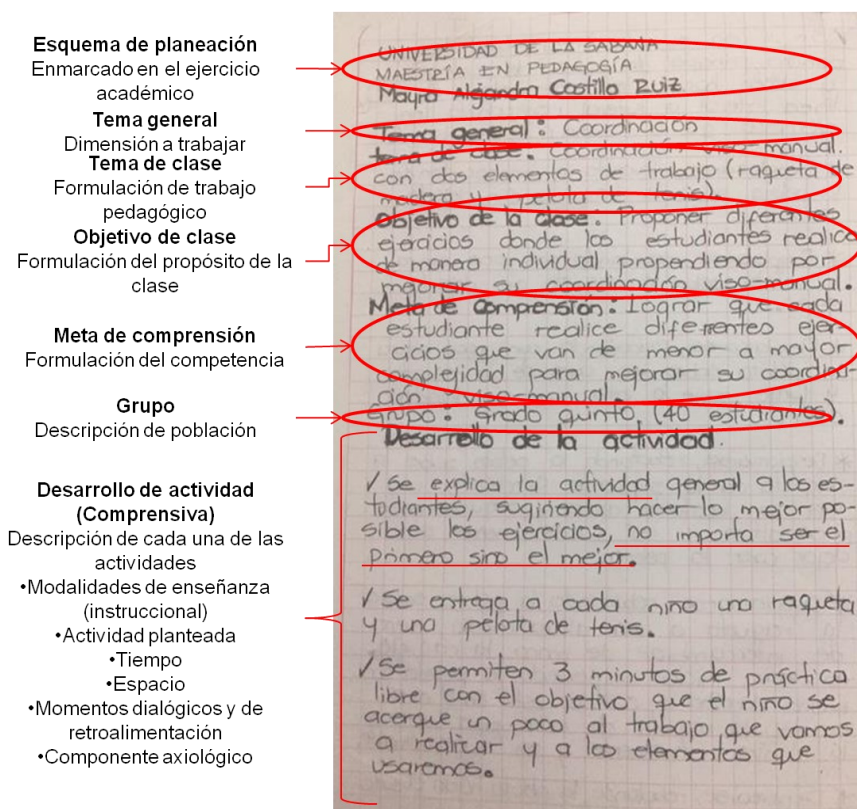 Esquema de planeación
Enmarcado en el ejercicio
académico
Tema general
Dimensión a trabajar
Tema de clase
Formulación de trabajo
pedagógico
Objetivo de clase
Formulación del propósito de la
clase
Meta de comprensión
Formulación del competencia
Grupo
Descripción de población
Desarrollo de actividad
(Comprensiva)
Descripción de cada una de las
actividades
•Modalidades de enseñanza
(instruccional)
•Actividad planteada
•Tiempo
•Espacio
•Momentos dialógicos y de
retroalimentación
•Componente axiológico
UNIVERSIDAD DE LA SABANA
MAESTRÍA EN PEDAGOGÍA
Mayra Alejandra Castillo Ruiz
Tema general: Coordinación
tema de clase: Coordinación viso-manual.
con dos elementos de trabajo (raqueta de
madera y pelota de tenis).
Objetivo de la clase: Proponer diferentes
ejercicios donde los estudiantes realice
de manera individual propendiendo por
mejorar su coordinación viso-manual.
Meta de comprensión: Lograr que cada
estudiante realice diferentes ejer-
cicios que van de menor a mayor
complejidad para mejorar su coordina-
ción viso-manual.
Grupo: Grado quinto (40 estudiantes).
Desarrollo de la actividad.
✓ Se explica la actividad general a los es-
tudiantes, sugiriendo hacer lo mejor po-
sible los ejercicios, no importa ser el
primero sino el mejor.
✓ Se entrega a cada niño una raqueta
y una pelota de tenis.
✓ Se permiten 3 minutos de práctica
libre con el objetivo que el niño se
acerque un poco al trabajo que vamos
a realizar y a los elementos que
usaremos.